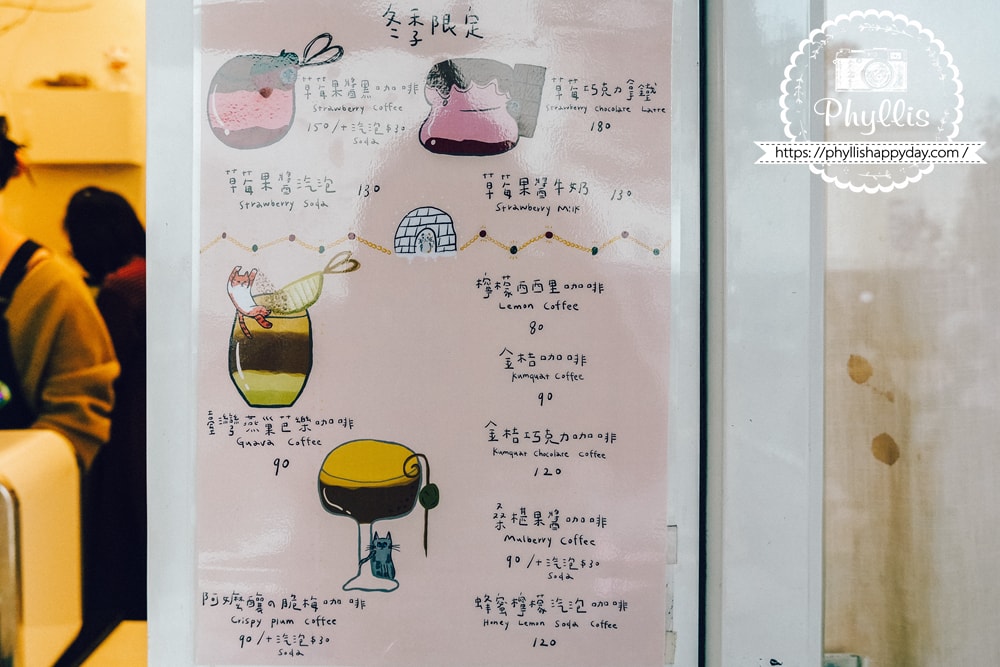 冬季限定
草莓果醬黑咖啡
Strawberry Coffee
150/+汽泡$30
Soda
草莓巧克力拿鐵
Strawberry Chocolate Latte
180
草莓果醬汽泡 130
Strawberry Soda
草莓果醬牛奶 130
Strawberry Milk
臺灣燕巢芭樂咖啡
Guava Coffee
90
阿嬤釀の脆梅咖啡
Crispy plum Coffee
90/+汽泡$30
Soda
檸檬西西里咖啡
Lemon Coffee
80
金桔咖啡
Kumquat Coffee
90
金桔巧克力咖啡
Kumquat Chocolate Coffee
120
桑椹果醬咖啡
Mulberry Coffee
90/+汽泡$30
Soda
蜂蜜檸檬汽泡咖啡
Honey Lemon Soda Coffee
120
Phyllis
https://phyllishappyday.com/